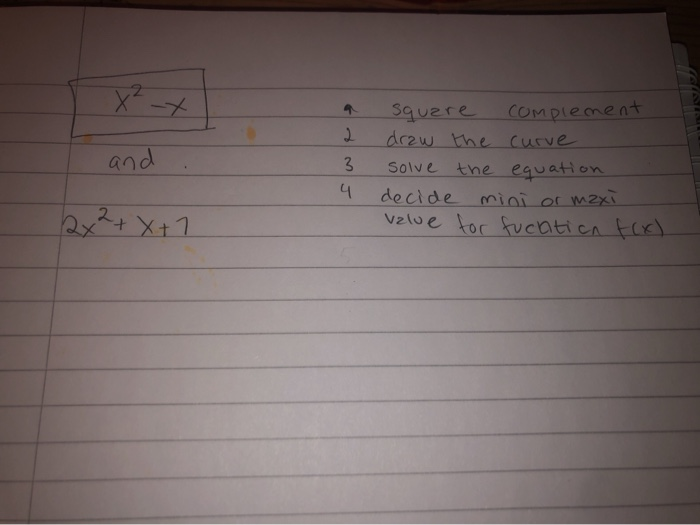 x² - x
and .
2x² + x + 1
1 square complement
2 draw the curve
3 solve the equation
4 decide mini or maxi
value for fucntion f(x)